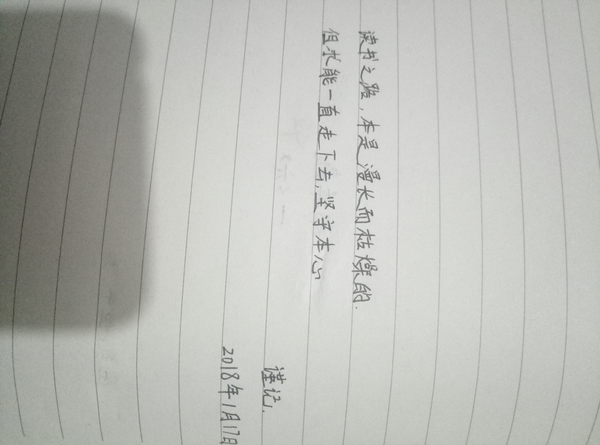 读书之路,本是漫长而枯燥的.
但求能一直走下去,坚守本心
谨记.
2018年1月17日